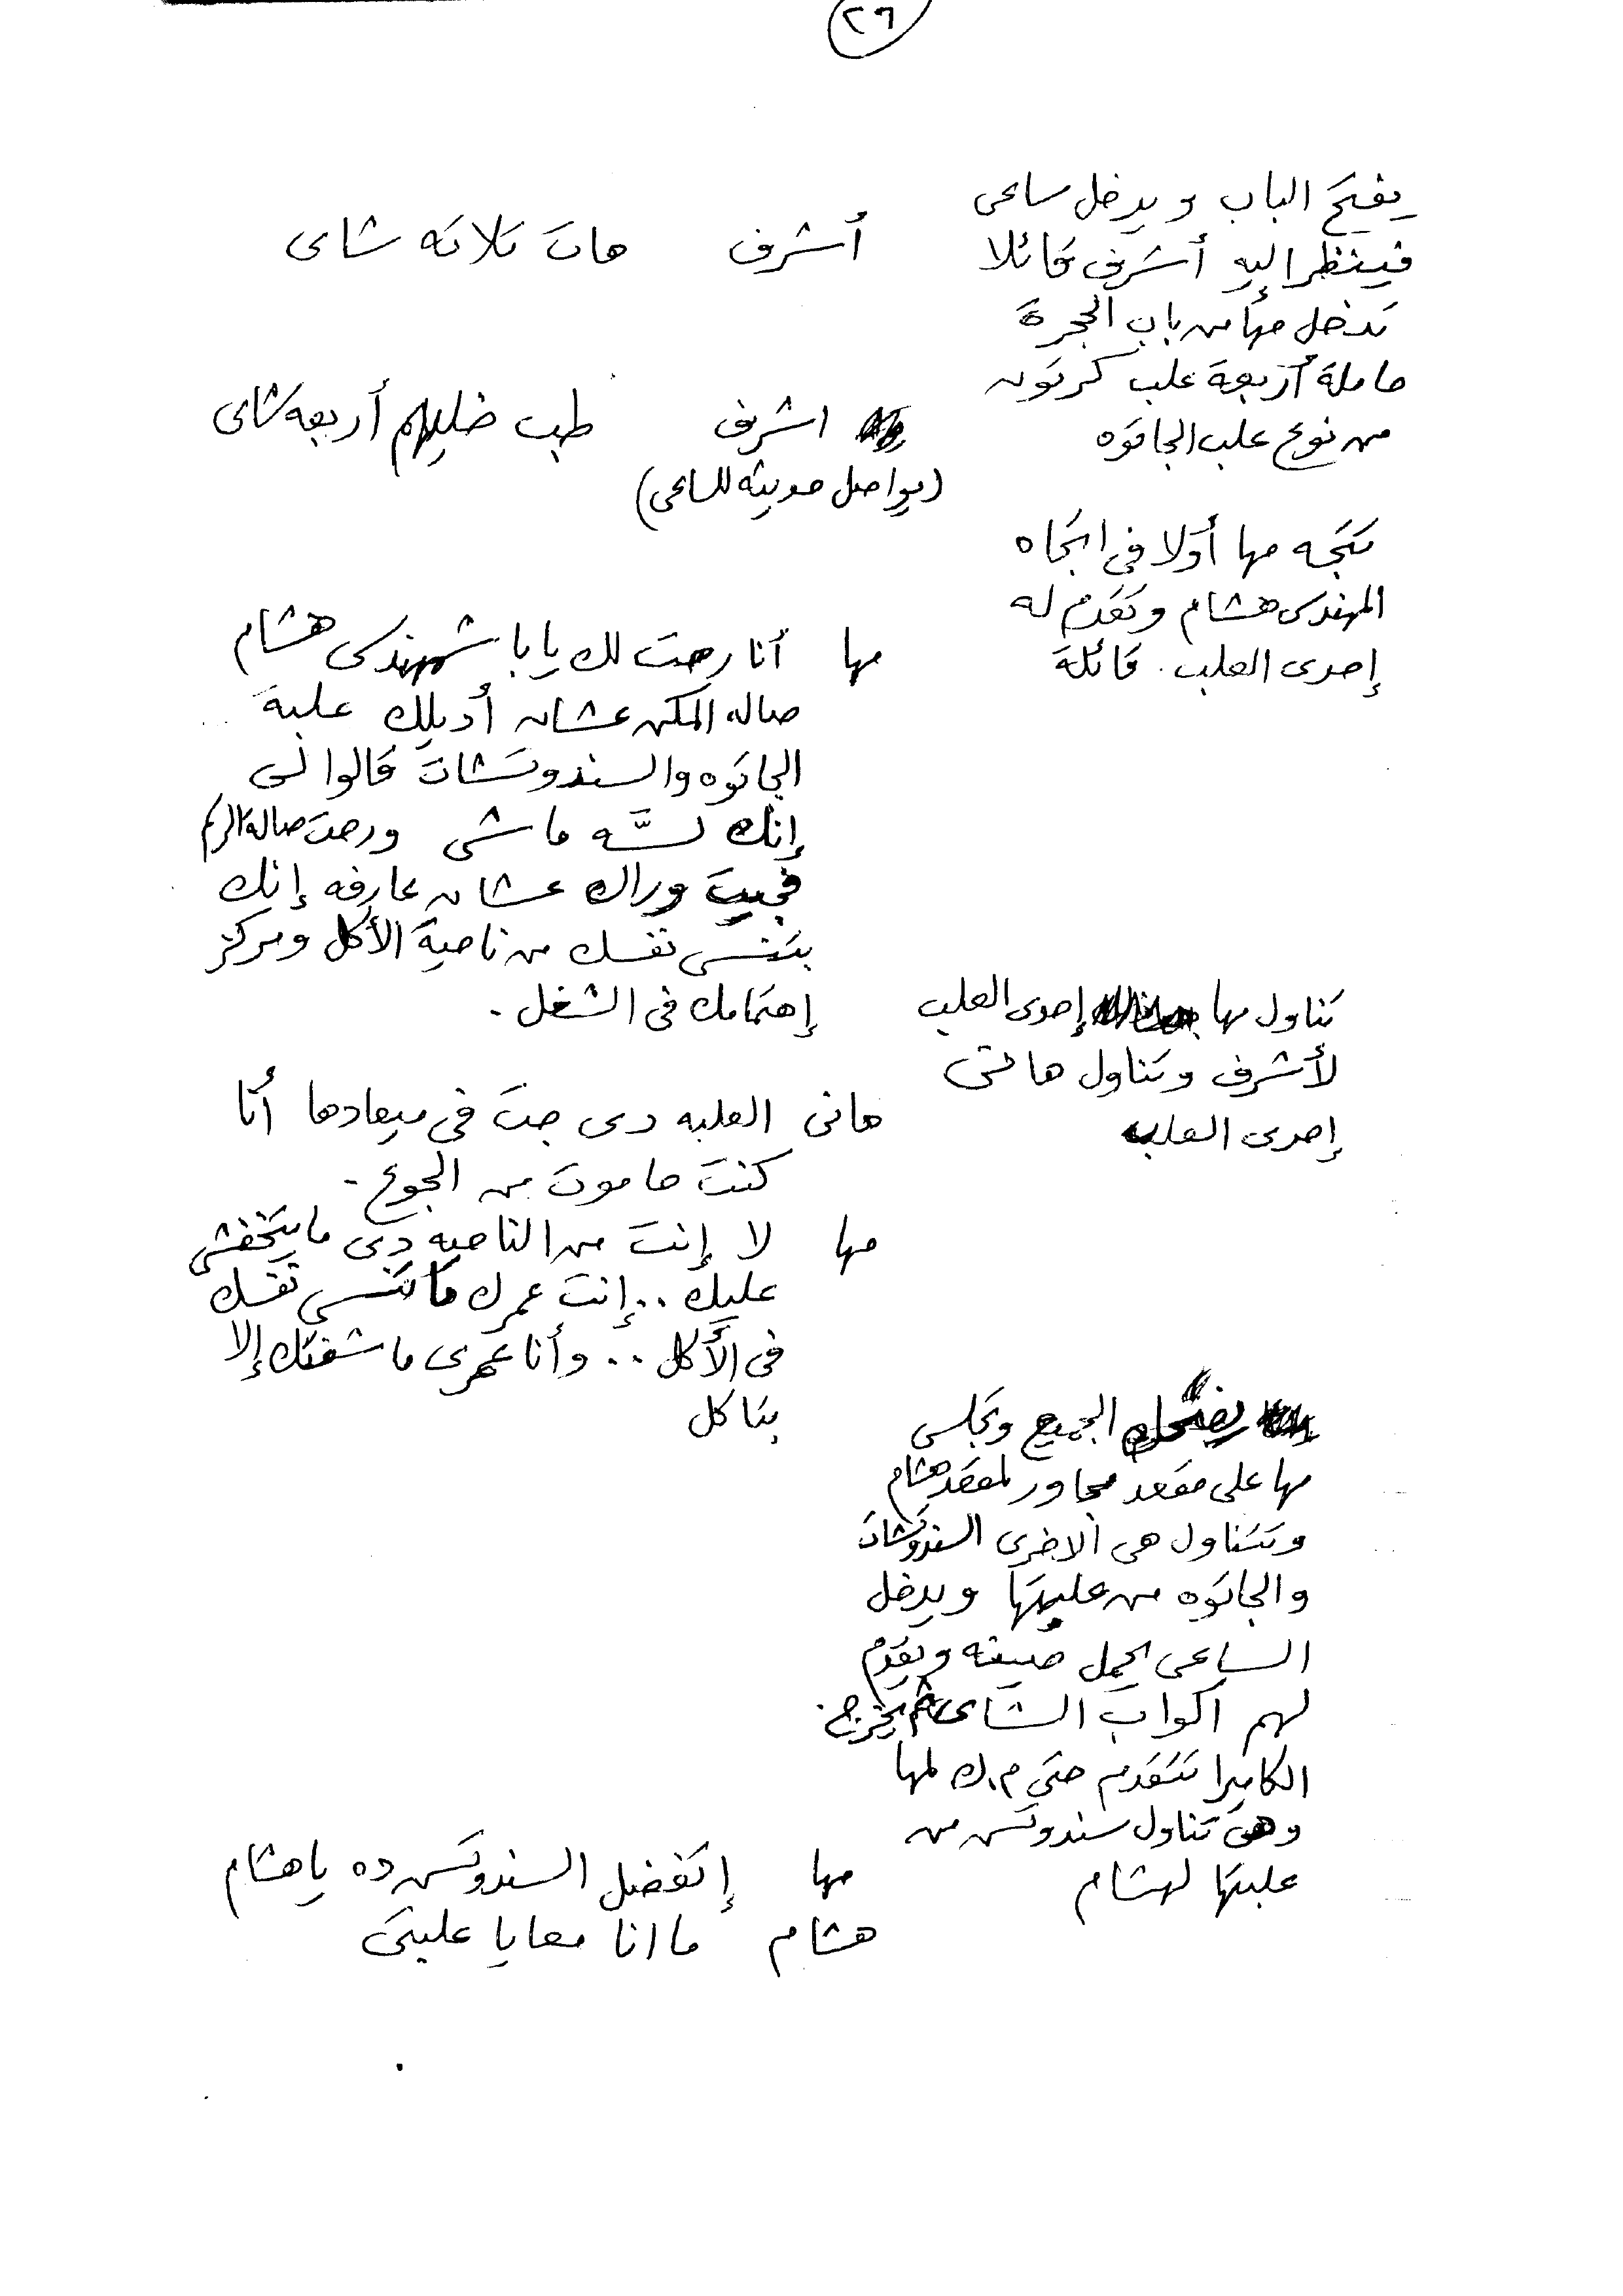 ٢٦
يفتح الباب ويدخل ساعى
فينظر إليه أشرف قائلا
أشرف هات تلاته شاى
تدخل مها من باب الحجرة
حاملة أربعة علب كرتون
من نوع علب الجاتوه
اشرف طب خليهم أربعه شاى
(يواصل حديثه للساعى)
تتجه مها أولا فى اتجاه
المهندس هشام وتقدم له
إحدى العلب. قائلة
مها أنا رحت لك يا باشمهندس هشام
صاله المكن عشان أديلك علبة
الجاتوه والسندوتشات قالوا لى
إنك لسَّه ماشى ورحت صالة الرسم
فجيت وراك عشان عارفه إنك
بتنسى نفسك من ناحية الأكل ومركز
إهتمامك فى الشغل .
تناول مها إحدى العلب
لأشرف وتناول هانى
إحدى العلب
هانى العلبه دى جت فى ميعادها أنا
كنت حاموت من الجوع .
مها لا إنت من الناحيه دى ما يتخفش
عليك .. إنت عمرك ما تنسى نفسك
فى الأكل .. وأنا عمرى ما شفتك إلا
بتاكل
يضحك الجميع وتجلس
مها على مقعد مجاور لمقعد هشام
وتتناول هى الاخرى السندوتشات
والجاتوه من علبتها ويدخل
الساعى يحمل صينيه ويقدم
لهم اكواب الشاى ثم يخرج.
الكاميرا تتقدم حتى م.ك لمها
وهى تناول سندوتش من
علبتها لهشام
مها إتفضل السندوتش ده يا هشام
هشام ما انا معايا علبتى